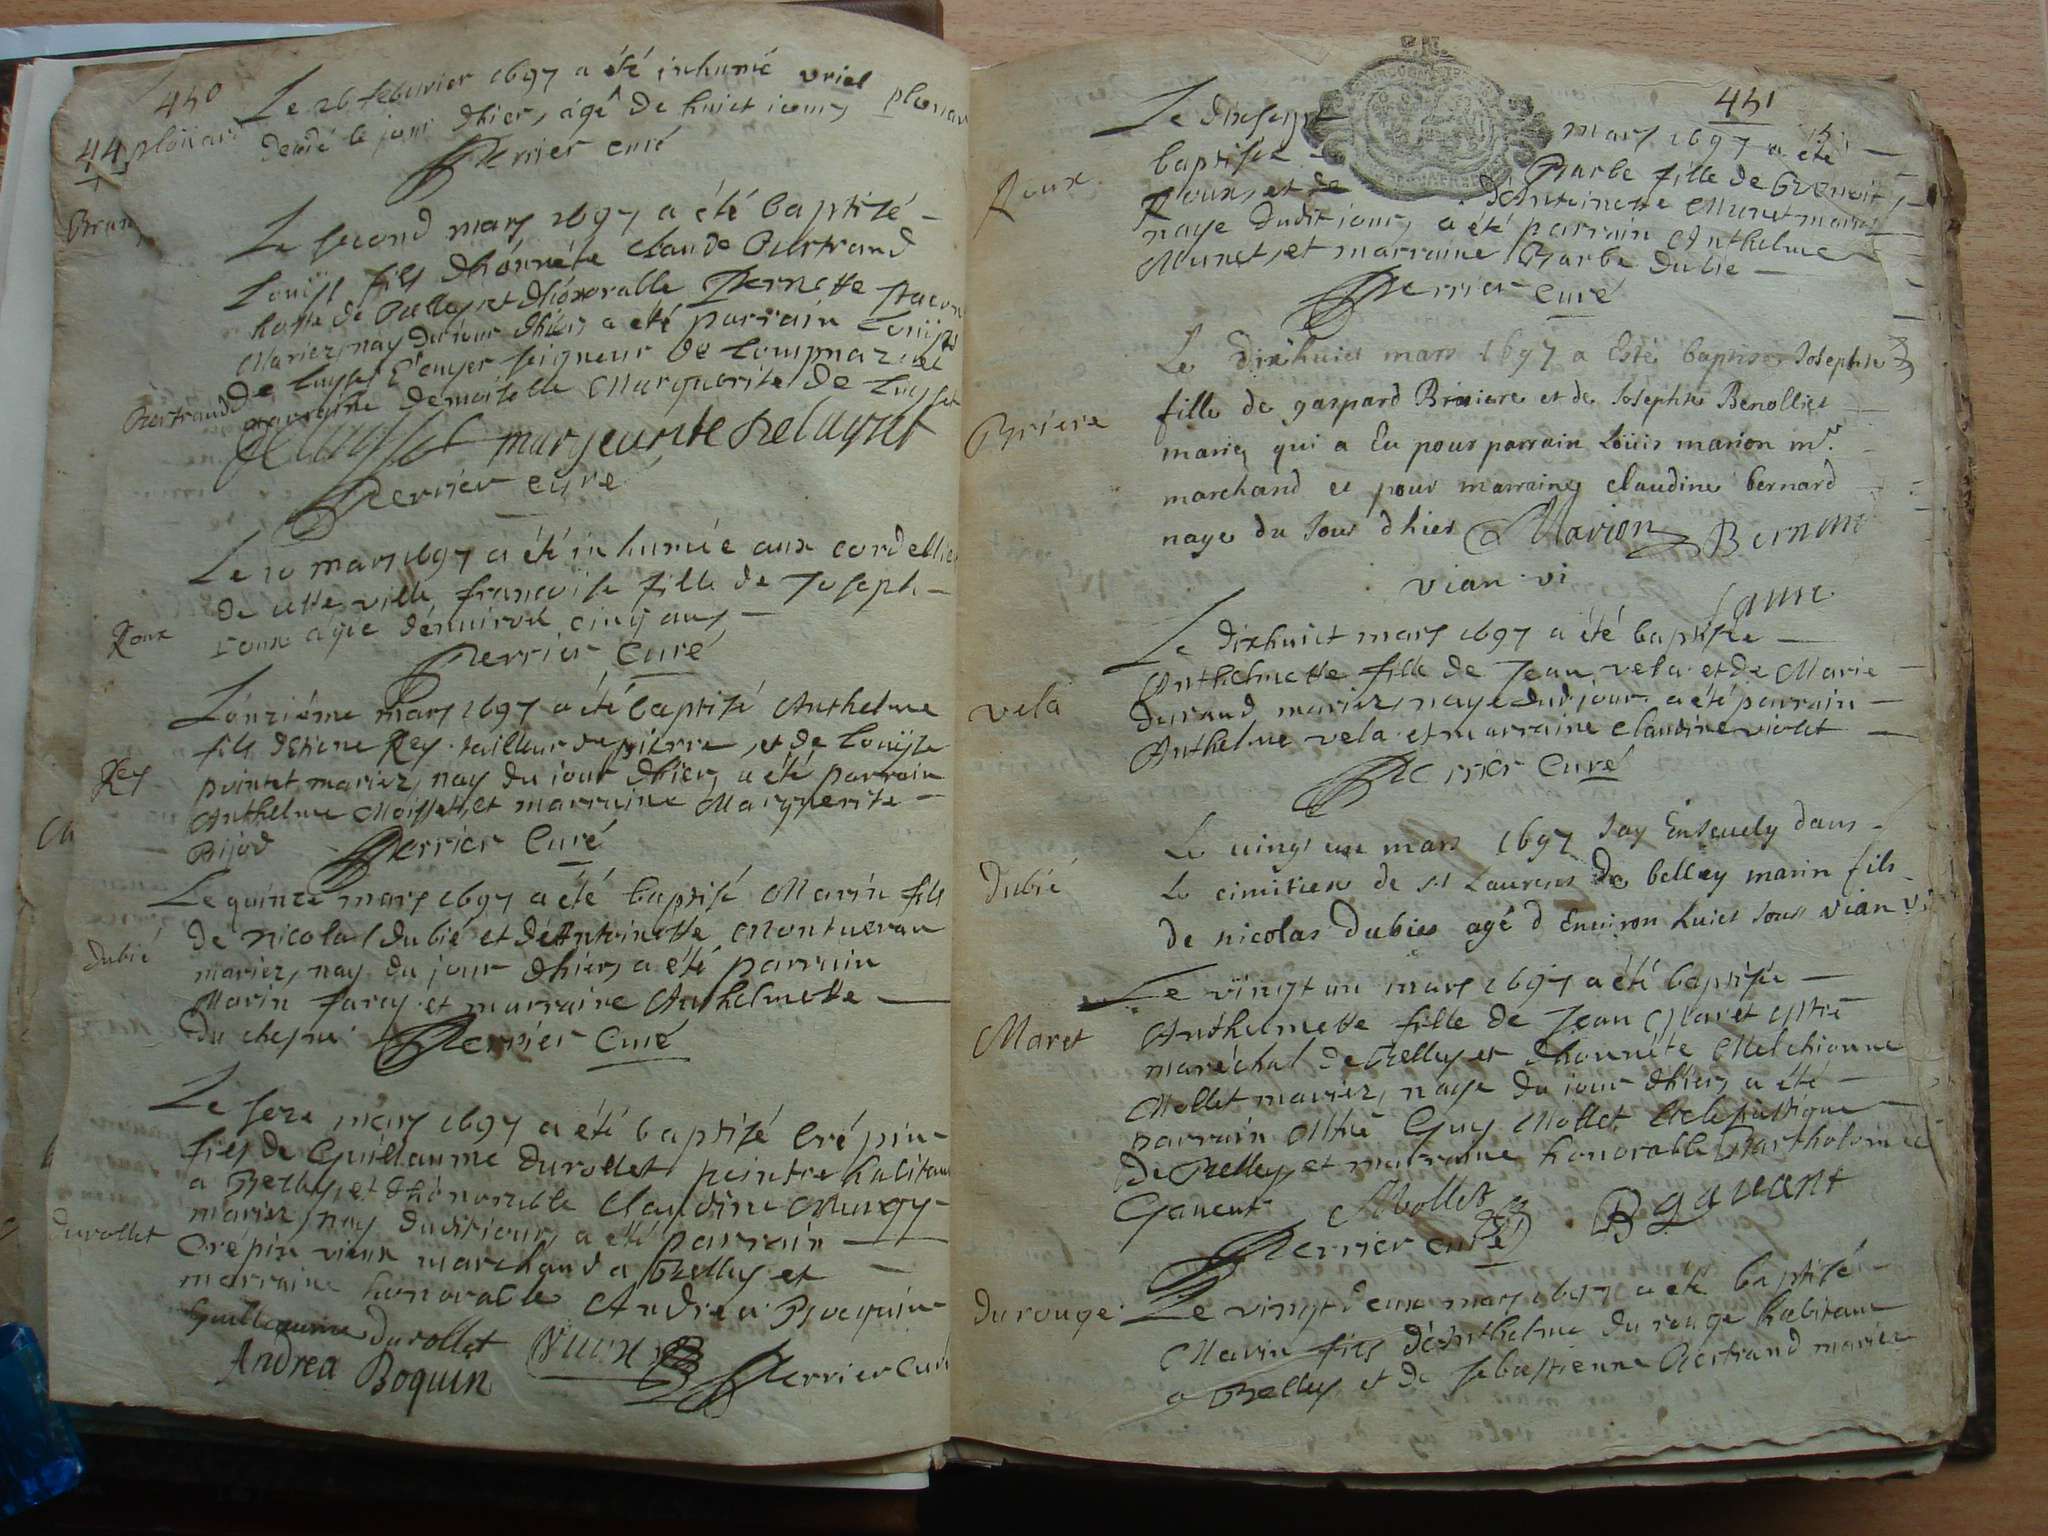 450
44
Le 26 febvrier 1697 a été inhumé uriel
plouard
decedé le jour dhier, agé de huict iours
Perrier curé
Le second mars 1697 a été baptisé
Louÿs fils dhonnéte claude Bertrand
hoste de Belley et dhonorable Pernette
Mariez, nay du iour dhier, a été parrain Louÿs
De Luysset Ecuyer seigneur de
marraine demoiselle Marguerite de Luysset
Bertrand
marguerite Deluyset
Perrier curé
Le 10 mars 1697 a été inhumée aux cordellie
de cette ville francoise fille de Joseph
roux agée dénuiron cinq ans
Roux
Perrier Curé
Lónziéme mars 1697 a été baptisé Anthelme
fils détiene Rey tailleur de pierre, et de Louÿse
pointet mariez, nay du iour dhier, a été parrain
Anthelme Moisset, et marraine Marguerite
Bijod
Rey
Perrier Curé
Le quinze mars 1697 a été baptisé Marin fils
de nicolas Dubié et dé Antoinette Montueran
mariez, nay du jour dhier, a été parrain
Marin farcy et marraine Anthelmette
du chesne
dubié
Perrier Curé
Le seze mars 1697 a été baptisé Crépin
fils de Guillaume Durollet peintre habitant
a Belley, et dhónorable Claudine
mariez, nay dudit iour, a été parrain
Crépin vieux marchand a Belley et
marraine honorable Andréa Bocquin
durollet
Guillaume Durollet
Andrea Boquin
Vieux
Perrier Curé
451
Le dixsept mars 1697 a été
baptisée Barbe fille de Benoit
Roux, et de dé Antoinette Munet mariez
naye dudit iour, a été parrain Anthelme
Munet, et marraine Barbe Dubie
Roux
Perrier Curé
Le dixhuict mars 1697 a Esté baptisée Josephte
fille de gaspard Briaiere et de Josephte Benolliet
mariez qui a Eu pour parrain Loüis marion mr
marchand et pour marraine claudine bernard
naye du Jour dhier Marion Bernard
Briere
vian vi
Le dixhuict mars 1697 a été baptisée
Anthelmette fille de Jean vela et de Marie
durand mariez, naye dud jour a été parrain
Anthelme vela et marraine claudine violet
vela
Perrier Curé
Le uingt un mars 1697 Jay Enseuely dans
Le cimitiere de st Laurens de belley marin fils
de nicolas Dubies agé d Enuiron huict Jours vian vi
Dubié
Le vingt un mars 1697 a été baptisée
Anthelmette fille de Jean Maret
maréchal de Belley et dhonnéte Melchionne
Mollet mariez, naye du iour dhier, a été
parrain Guy Mollet Ecclesiastique
de Belley, et marraine honorable Bartholomée
Gauent Mollet B gauant
Maret
Perrier curé
Le vingt deux mars 1697 a été baptisé
Marin fils dé Anthelme du rouge habitant
a Belley et de sebastienne Bertrand mariez
du rouge